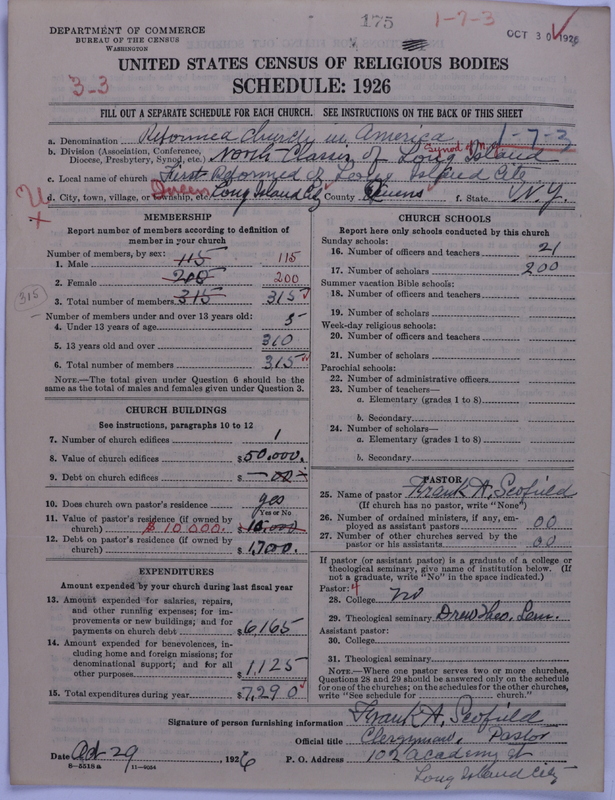 175
1-7-3
OCT 30 1926
DEPARTMENT OF COMMERCE
BUREAU OF THE CENSUS
WASHINGTON
3-3
UNITED STATES CENSUS OF RELIGIOUS BODIES
SCHEDULE: 1926
FILL OUT A SEPARATE SCHEDULE FOR EACH CHURCH. SEE INSTRUCTIONS ON THE BACK OF THIS SHEET
a. Denomination Reformed Church in America
1-7-3
b. Division (Association, Conference, Diocese, Presbytery, Synod, etc.) North Classis of Long Island
Synod of N.
c. Local name of church First Reformed of Long Island City
d. City, town, village, or township, etc. Queens Long Island City County Queens f. State N.Y.
MEMBERSHIP
Report number of members according to definition of
member in your church
Number of members, by sex:
1. Male 115 115
2. Female 200 200
3. Total number of members 315 315
315
Number of members under and over 13 years old:
4. Under 13 years of age 5
5. 13 years old and over 310
6. Total number of members 315
NOTE.—The total given under Question 6 should be the
same as the total of males and females given under Question 3.
CHURCH BUILDINGS
See instructions, paragraphs 10 to 12
7. Number of church edifices 1
8. Value of church edifices $50,000.
9. Debt on church edifices $ —00—
10. Does church own pastor's residence yes
Yes or No
11. Value of pastor's residence (if owned by
church) $10,000. $10,000
12. Debt on pastor's residence (if owned by
church) $1,700.
EXPENDITURES
Amount expended by your church during last fiscal year
13. Amount expended for salaries, repairs,
and other running expenses; for im-
provements or new buildings; and for
payments on church debt $6,165
14. Amount expended for benevolences, in-
cluding home and foreign missions; for
denominational support; and for all
other purposes $1,125
15. Total expenditures during year $7,290
CHURCH SCHOOLS
Report here only schools conducted by this church
Sunday schools:
16. Number of officers and teachers 21
17. Number of scholars 200
Summer vacation Bible schools:
18. Number of officers and teachers
19. Number of scholars
Week-day religious schools:
20. Number of officers and teachers
21. Number of scholars
Parochial schools:
22. Number of administrative officers
23. Number of teachers—
a. Elementary (grades 1 to 8)
b. Secondary
24. Number of scholars—
a. Elementary (grades 1 to 8)
b. Secondary
PASTOR
25. Name of pastor Frank A. Scofield
(If church has no pastor, write "None")
26. Number of ordained ministers, if any, em-
ployed as assistant pastors 00
27. Number of other churches served by the
pastor or his assistants 00
If pastor (or assistant pastor) is a graduate of a college or
theological seminary, give name of institution below. (If
not a graduate, write "No" in the space indicated.)
Pastor: 4
28. College no
29. Theological seminary Drew Theo. Sem.
Assistant pastor:
30. College
31. Theological seminary
NOTE.—Where one pastor serves two or more churches,
Questions 28 and 29 should be answered only on the schedule
for one of the churches; on the schedules for the other churches,
write "See schedule for church."
Signature of person furnishing information Frank A. Scofield
Official title Clergyman, Pastor
Date Oct 29, 1926 P. O. Address 102 Academy St
Long Island City
8-5518 a 11-9054